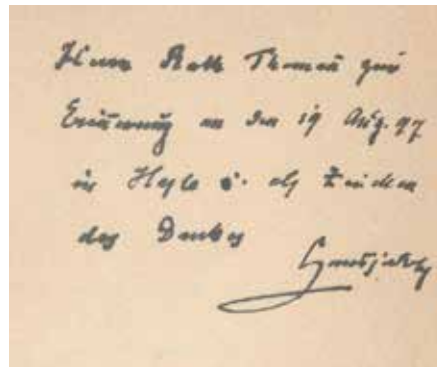 Herrn Rath Thomen zur
Erinnerung an den 19 Aug. 97
in
als Zeichen
des Dankes